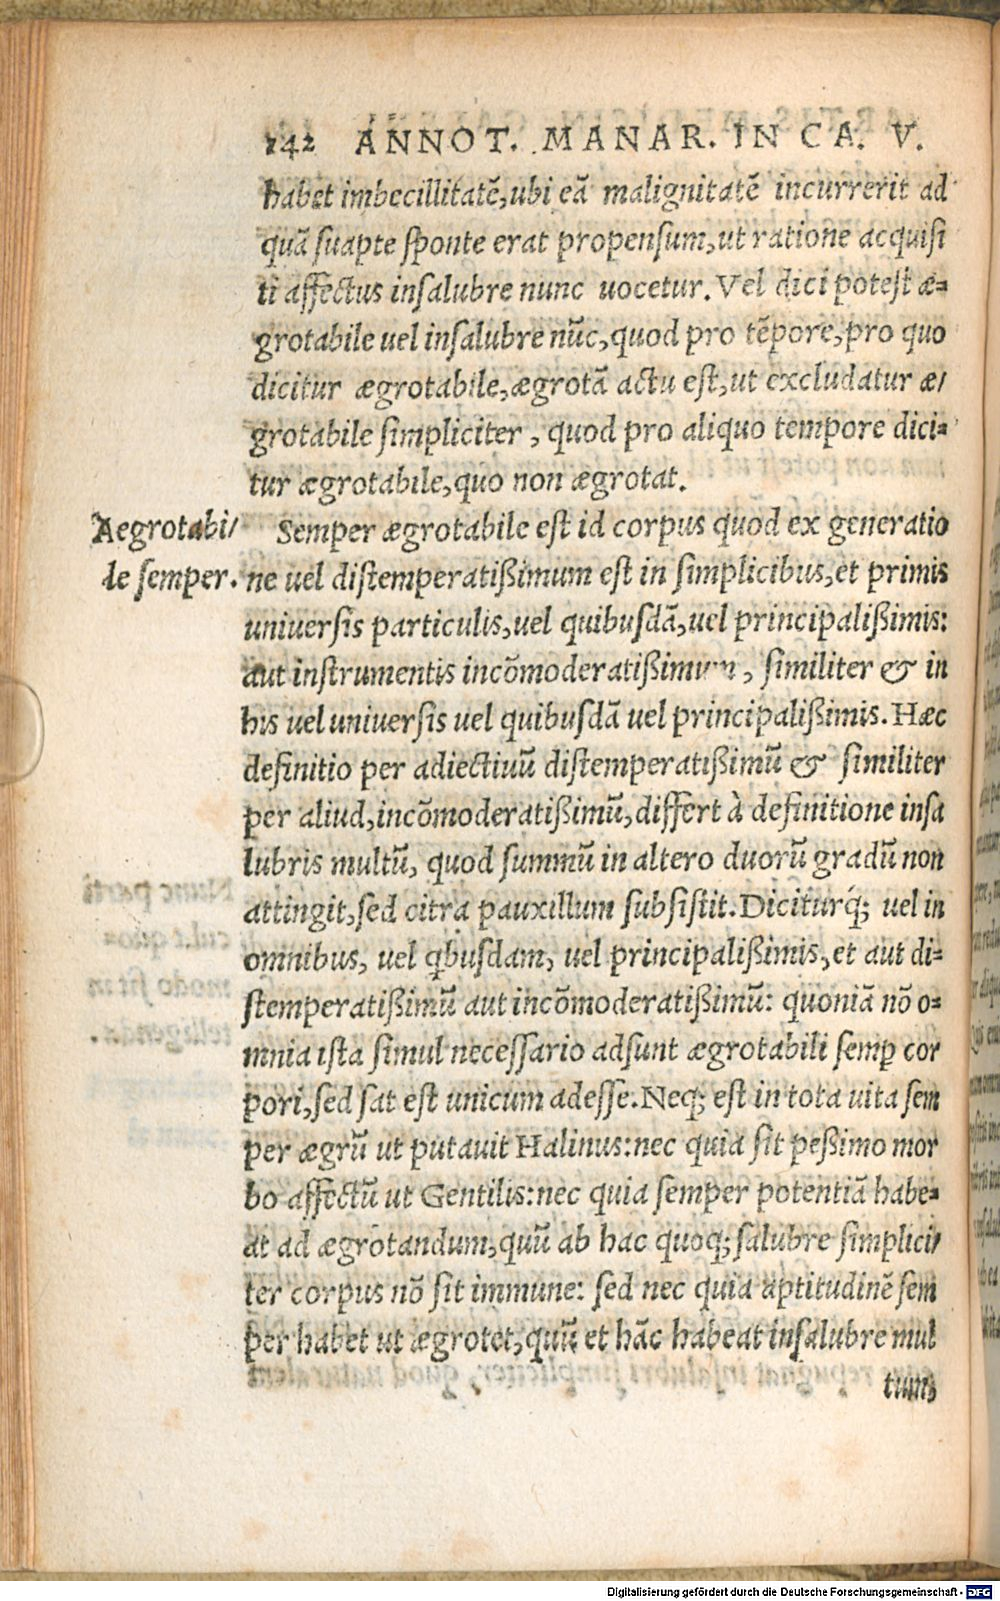 142 ANNOT. MANAR. IN CA. V.
habet imbecillitatẽ, ubi eã malignitatẽ incurrerit ad
quã suapte sponte erat propensum, ut ratione acquisi
ti affectus insalubre nunc uocetur. Vel dici potest æ-
grotabile uel insalubre nũc, quod pro tẽpore, pro quo
dicitur ægrotabile, ægrotã actu est, ut excludatur æ/
grotabile simpliciter, quod pro aliquo tempore dici-
tur ægrotabile, quo non ægrotat.
Aegrotabi/
le semper.
Semper ægrotabile est id corpus quod ex generatio
ne uel distemperatißimum est in simplicibus, et primis
uniuersis particulis, uel quibusdã, uel principalißimis:
aut instrumentis incõmoderatißimum, similiter & in
his uel uniuersis uel quibusdã uel principalißimis. Hæc
definitio per adiectiuũ distemperatißimũ & similiter
per aliud, incõmoderatißimũ, differt à definitione insa
lubris multũ, quod summũ in altero duorũ gradũ non
attingit, sed citra pauxillum subsistit. Diciturq́; uel in
omnibus, uel qbusdam, uel principalißimis, et aut di-
stemperatißimũ aut incõmoderatißimũ: quoniã nõ o-
mnia ista simul necessario adsunt ægrotabili semꝑ cor
pori, sed sat est unicum adesse. Neq; est in tota uita sem
per ægrũ ut putauit Halinus: nec quia sit peßimo mor
bo affectũ ut Gentilis: nec quia semper potentiã habe-
at ad ægrotandum, quũ ab hac quoq; salubre simplici/
ter corpus nõ sit immune: sed nec quia aptitudinẽ sem
per habet ut ægrotet, quũ et hãc habeat insalubre mul
tum,
Digitalisierung gefördert durch die Deutsche Forschungsgemeinschaft - DFG